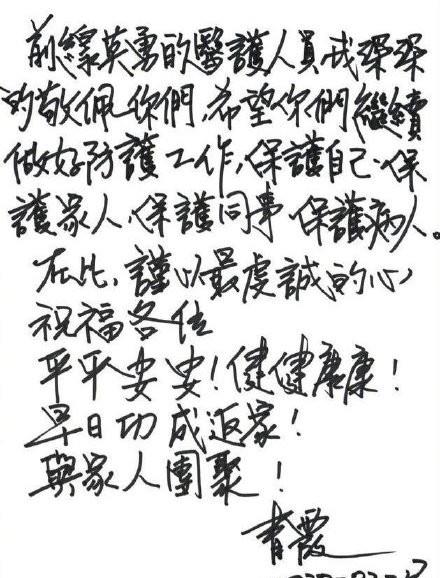 前線英勇的醫護人員,我深深
的敬佩你們,希望你們繼續
做好防護工作,保護自己、保
護家人、保護同事、保護病人。
在此,謹以最虔誠的心,
祝福各位
平平安安!健健康康!
早日功成返家!
與家人團聚!
青霞